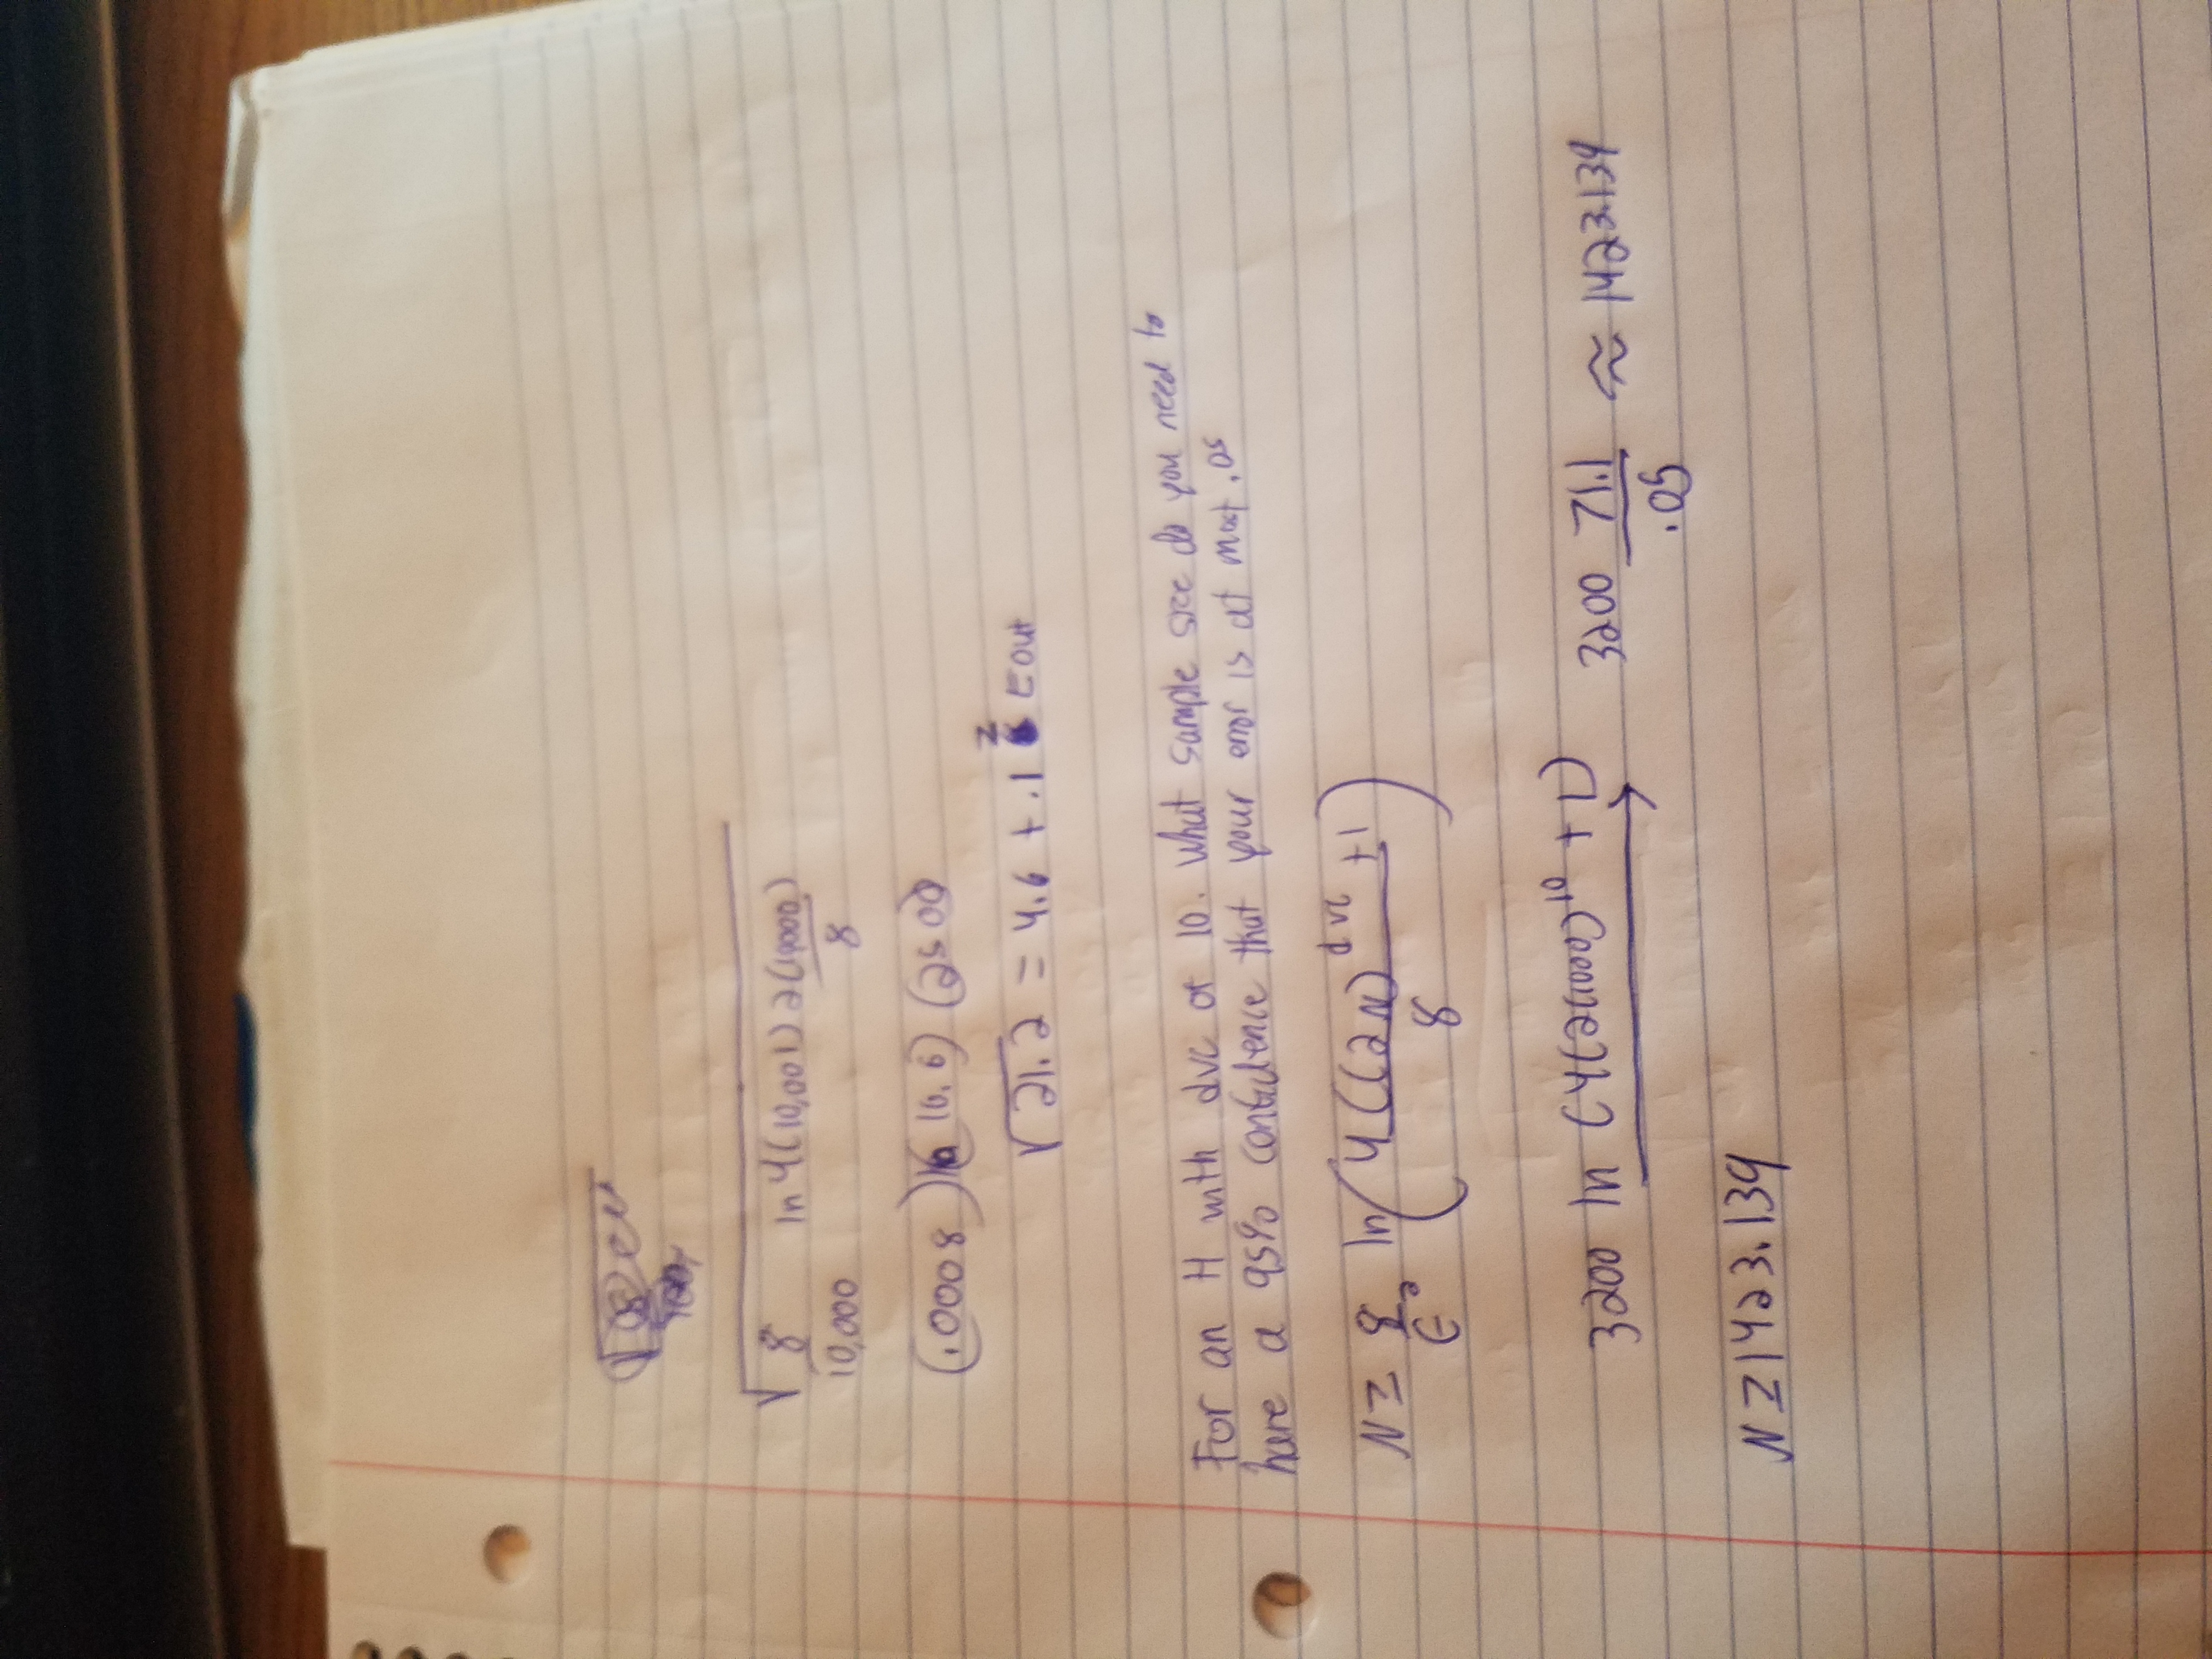 √ 8/10,000 ln 4(10,001) 2(10,000)/8
(.0008) (10.6) (2500)
√21.2 = 4.6 + .1 ≥ Eout
For an H with dvc of 10. What sample size do you need to
have a 95% confidence that your error is at most .05
N ≥ 8/ϵ² ln(4((2N)^dvc +1/8)
3200 ln (4(2(1000)^10 + 1) → 3200 71.1/.05 ≈ 1423.139
N ≥ 1423.139